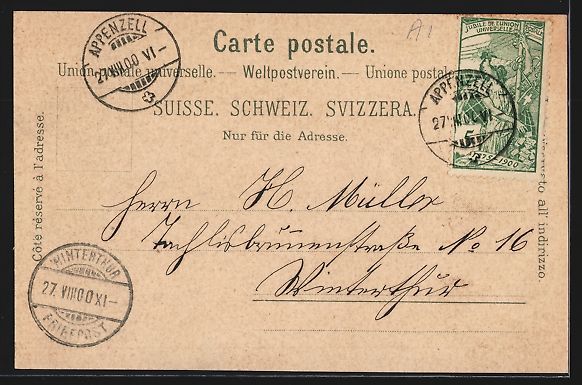 A1
JUBILÉ DE L'UNION POSTALE
UNIVERSELLE
APPENZELL
27.VIII.00 VI–
Carte postale.
Union postale universelle. — Weltpostverein. — Unione postale
APPENZELL
27.VIII.00 VI–
SUISSE. SCHWEIZ. SVIZZERA.
5
SUISSE 1900
Nur für die Adresse.
Côte réservé à l'adresse.
all' indirizzo.
Herrn H. Müller
Tachlisbrunnenstraße No 16
Winterthur
WINTERTHUR
27.VIII.00 XI–
BRIEFPOST